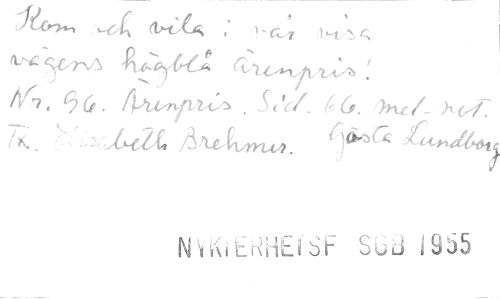 Kom och vila i vår visa
vägens högblå ärenpris!
Nr. 96. Ärenpris. Sid. 66. mel-not.
Tx. Elisabeth Brehmer. Gösta Lundborg
NYKTERHETSF SGB 1955